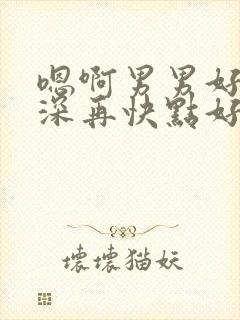 嗯啊男男好
深再快點好
壞壞猫妖